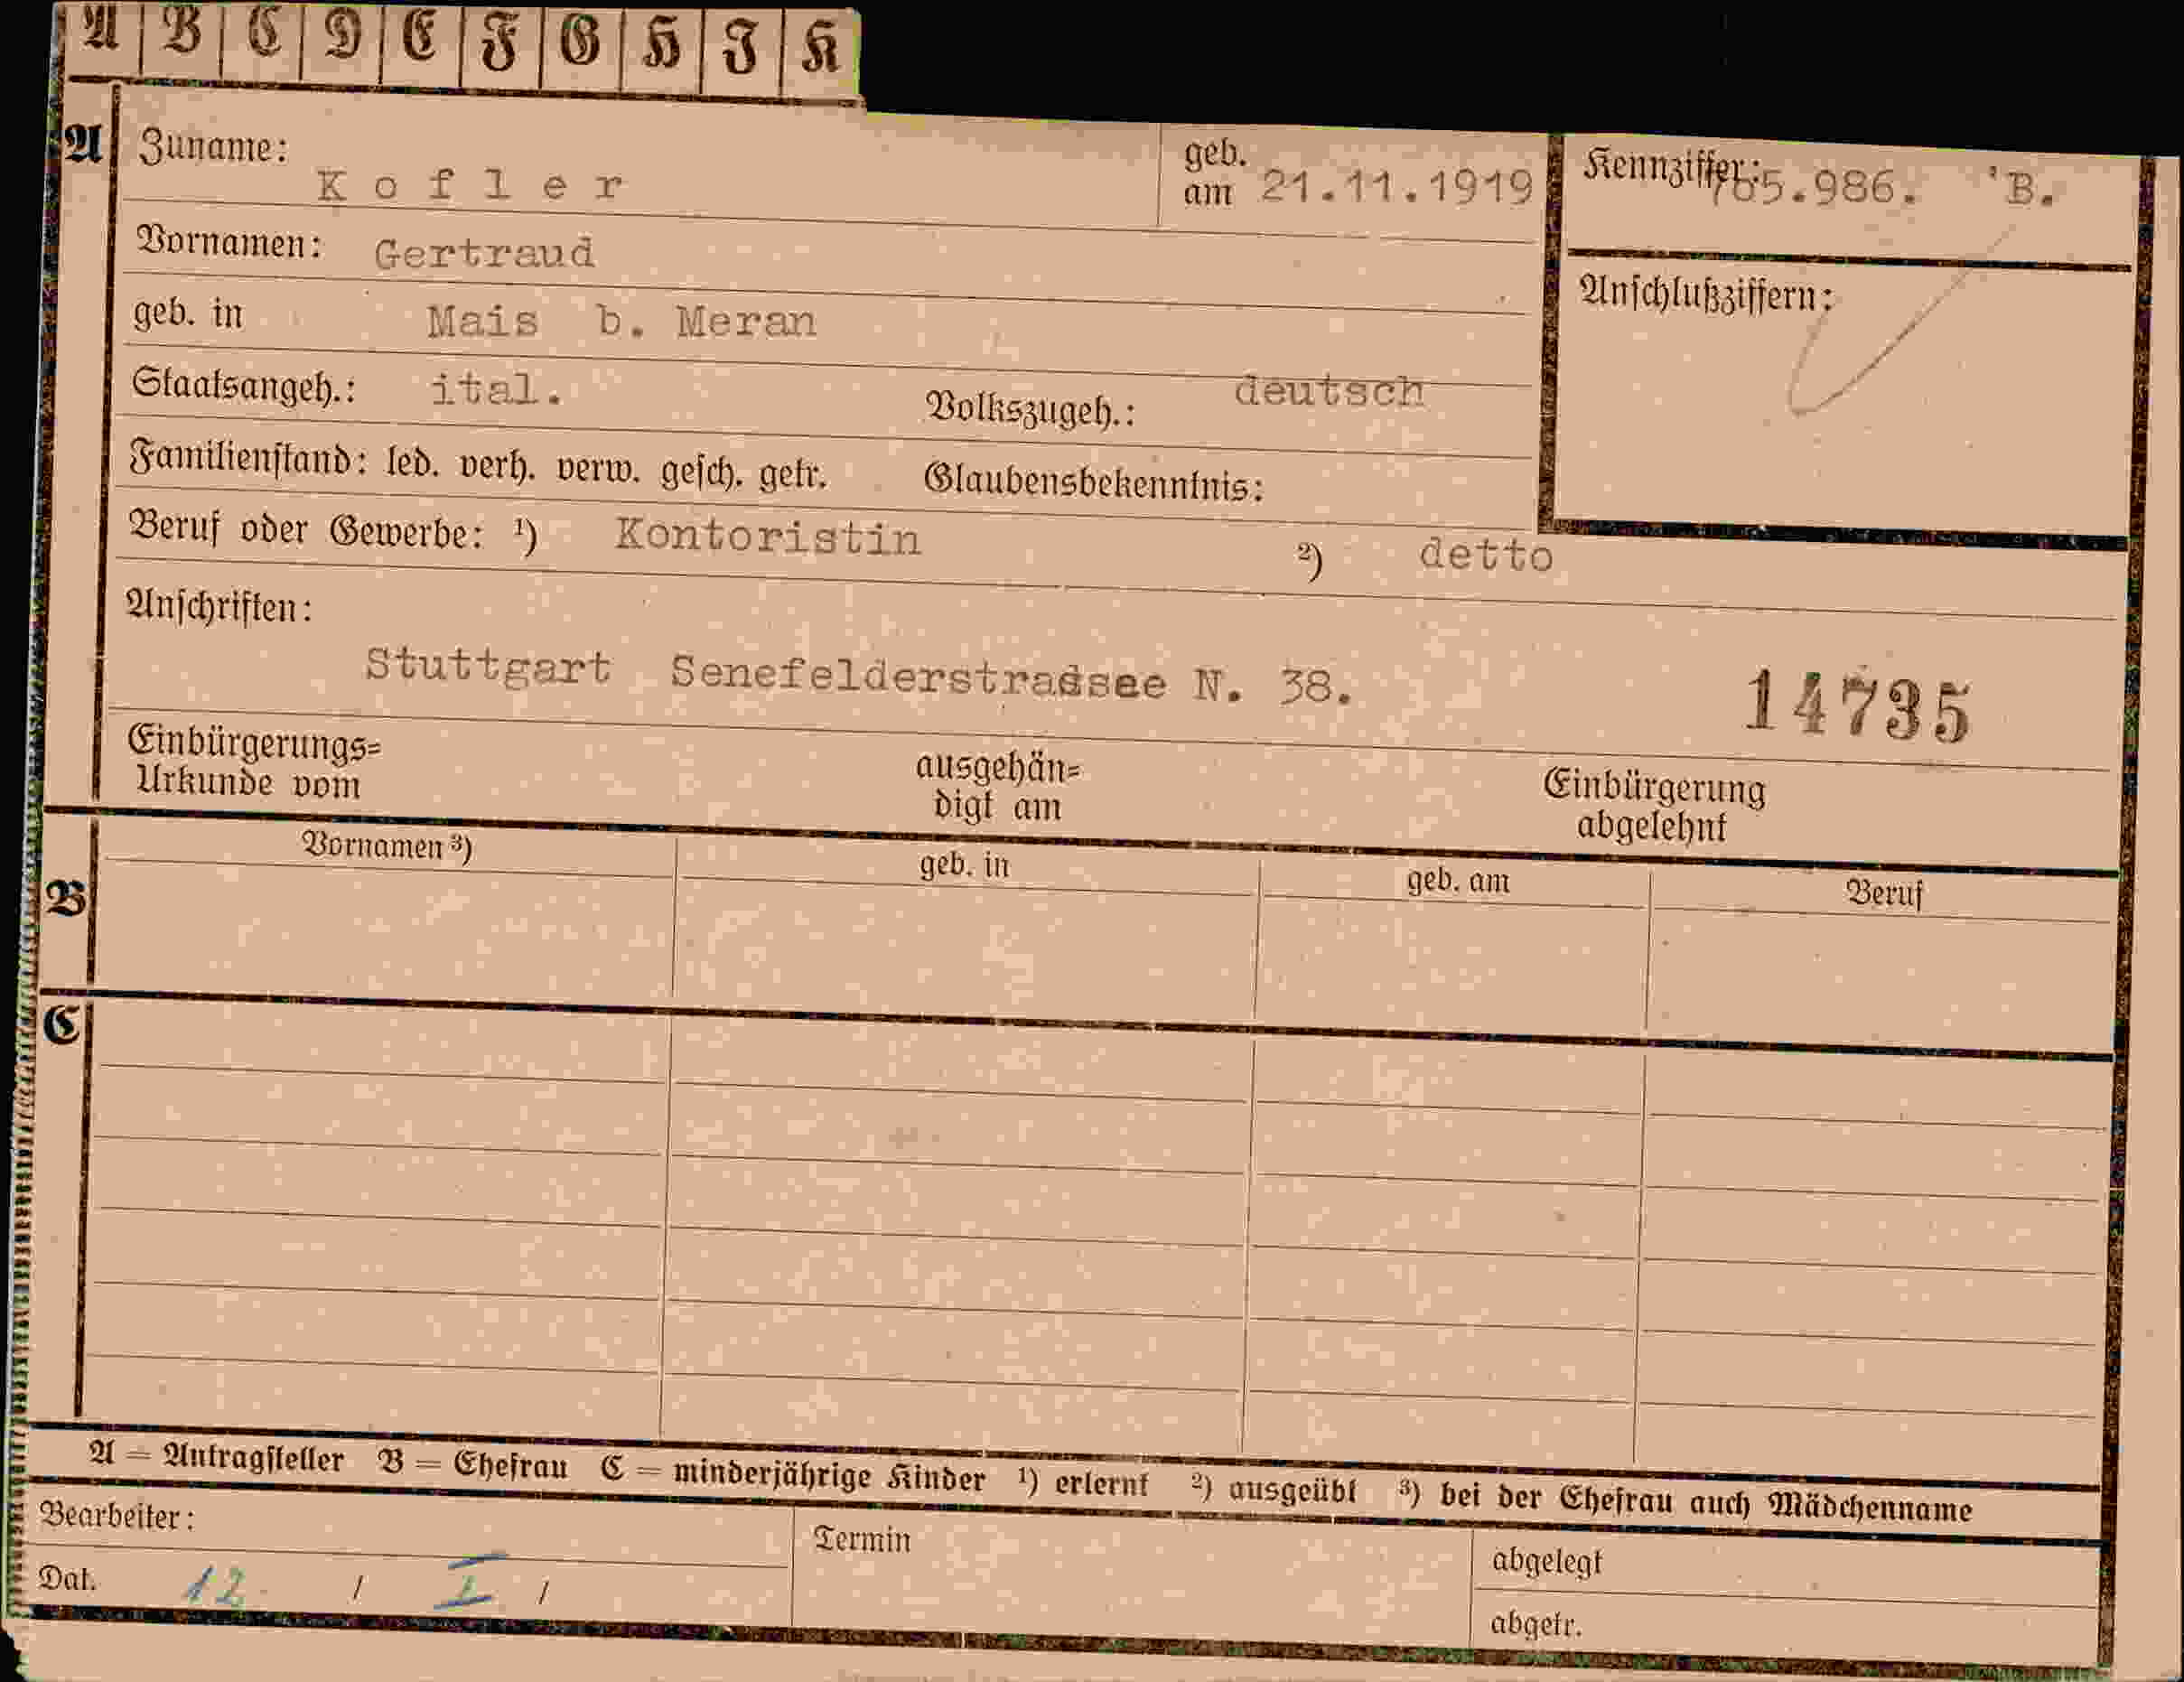 A B C D E F G H I K
A
Zuname: Kofler
geb. am 21.11.1919
Kennziffer: 765.986. 'B.
Vornamen: Gertraud
Anschlußziffern:
geb. in Mais b. Meran
Staatsangeh.: ital. Volkszugeh.: deutsch
Familienstand: led. verh. verw. gesch. getr. Glaubensbekenntnis:
Beruf oder Gewerbe: ¹) Kontoristin ²) detto
Anschriften:
Stuttgart Senefelderstrassee N. 38.
14735
Einbürgerungs=
Urkunde vom
ausgehän=
digt am
Einbürgerung
abgelehnt
B
Vornamen ³) geb. in geb. am Beruf
C
A = Antragsteller B = Ehefrau C = minderjährige Kinder ¹) erlernt ²) ausgeübt ³) bei der Ehefrau auch Mädchenname
Bearbeiter:
Dat. 12 / I /
Termin
abgelegt
abgetr.